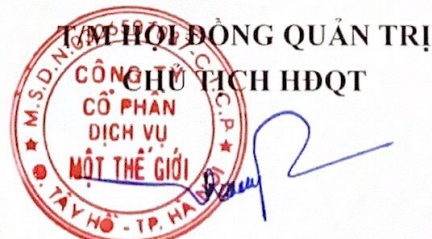 T/M HỘI ĐỒNG QUẢN TRỊ
CHỦ TỊCH HĐQT
CÔNG TY
CỔ PHẦN
DỊCH VỤ
MỘT THẾ GIỚI
Q. TÂY HỒ - TP. HÀ NỘI